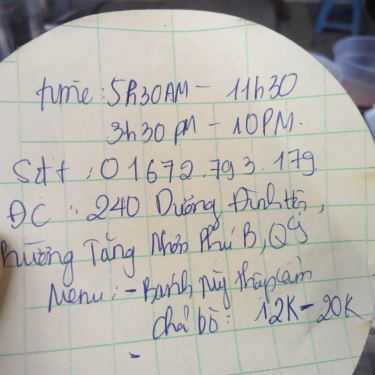 time: 5h30AM - 11h30
3h30 PM - 10PM.
Sđt: 01672.793.179
ĐC: 240 Dương Đình Hội,
Phường Tăng Nhơn Phú B, Q9
Menu: - Bánh mỳ thập cẩm
chả bò: 12K - 20K
-